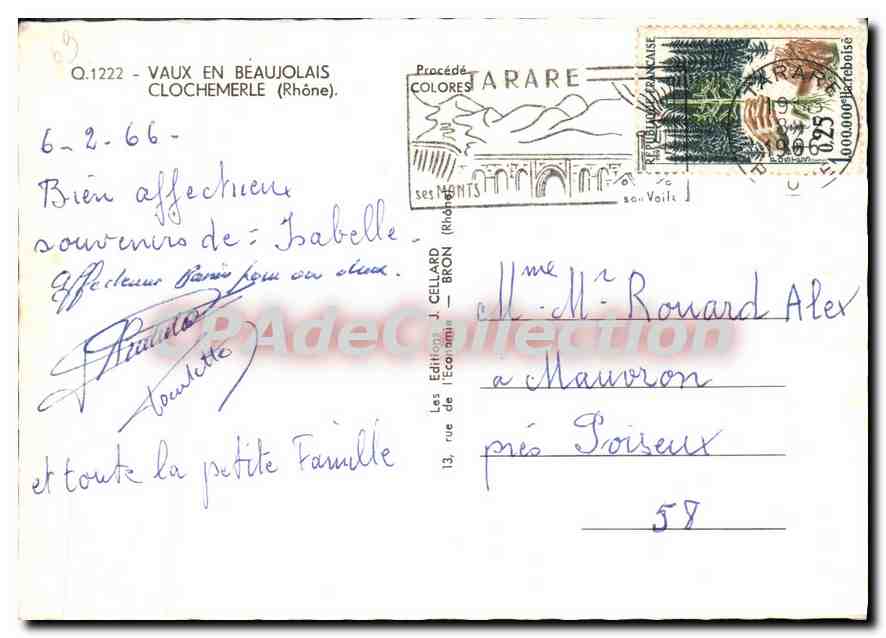 69
Q.1222 - VAUX EN BEAUJOLAIS
CLOCHEMERLE (Rhône).
Procédé
COLORES
6-2-66-
Bien affectueux
souvenirs de = Isabelle -
pour vous deux.
Paulette
et toute la petite Famille
Les Editions J. CELLARD
13, rue de l'Economie — BRON (Rhône)
TARARE
ses MONTS
son Voile
REPUBLIQUE FRANÇAISE
0,25
1.000.000e Ha reboisé
TARARE
1966
Mme Mr Rouard Alex
à Mauvron
près Poiseux
58
CPAdeCollection